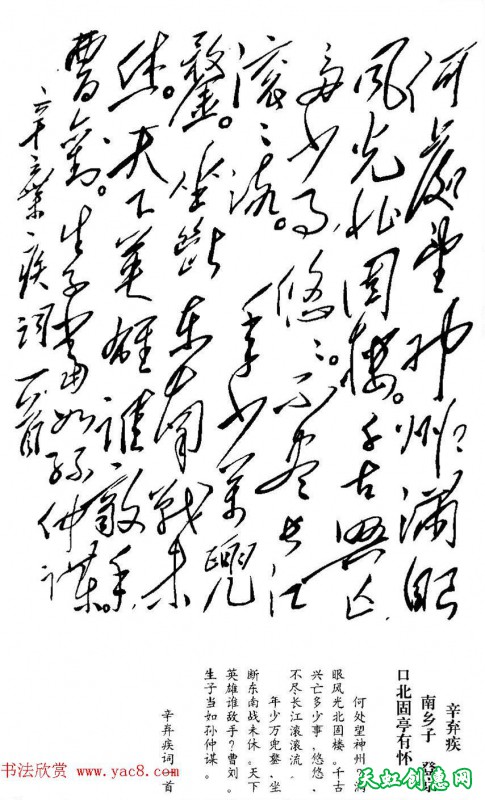 何處望神州滿眼
風光北固樓。千古興亡
多少事悠〻。不盡長江
滚〻流。年少萬兜
鍪。坐斷東南戰未
休。天下英雄誰敵手。
曹劉。生子當如孫仲謀。
辛棄疾詞一首
辛弃疾
南乡子 登京
口北固亭有怀
何处望神州，满
眼风光北固楼。千古
兴亡多少事，悠悠，
不尽长江滚滚流。
年少万兜鍪，坐
断东南战未休。天下
英雄谁敌手？曹刘。
生子当如孙仲谋。
辛弃疾词一首
书法欣赏 www.yac8.com
天虹创意网